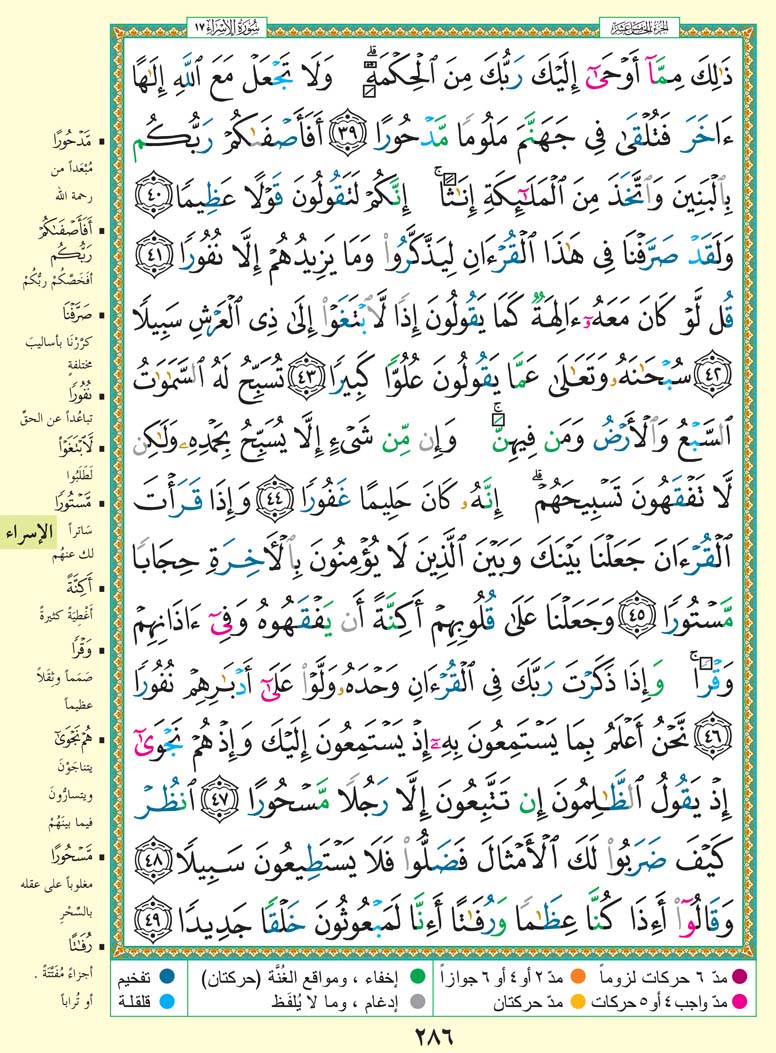 سُورَةُ الإِسْرَاء ١٧
الجُزءُ الخَامِسَ عَشَرَ
ذَٰلِكَ مِمَّآ أَوْحَىٰٓ إِلَيْكَ رَبُّكَ مِنَ ٱلْحِكْمَةِ ۗ وَلَا تَجْعَلْ مَعَ ٱللَّهِ إِلَٰهًا
ءَاخَرَ فَتُلْقَىٰ فِى جَهَنَّمَ مَلُومًا مَّدْحُورًا ٣٩ أَفَأَصْفَىٰكُمْ رَبُّكُم
بِٱلْبَنِينَ وَٱتَّخَذَ مِنَ ٱلْمَلَٰٓئِكَةِ إِنَٰثًا ۚ إِنَّكُمْ لَتَقُولُونَ قَوْلًا عَظِيمًا ٤٠
وَلَقَدْ صَرَّفْنَا فِى هَٰذَا ٱلْقُرْءَانِ لِيَذَّكَّرُوا۟ وَمَا يَزِيدُهُمْ إِلَّا نُفُورًا ٤١
قُل لَّوْ كَانَ مَعَهُۥٓ ءَالِهَةٌ كَمَا يَقُولُونَ إِذًا لَّٱبْتَغَوْا۟ إِلَىٰ ذِى ٱلْعَرْشِ سَبِيلًا
٤٢ سُبْحَٰنَهُۥ وَتَعَٰلَىٰ عَمَّا يَقُولُونَ عُلُوًّا كَبِيرًا ٤٣ تُسَبِّحُ لَهُ ٱلسَّمَٰوَٰتُ
ٱلسَّبْعُ وَٱلْأَرْضُ وَمَن فِيهِنَّ ۚ وَإِن مِّن شَىْءٍ إِلَّا يُسَبِّحُ بِحَمْدِهِۦ وَلَٰكِن
لَّا تَفْقَهُونَ تَسْبِيحَهُمْ ۗ إِنَّهُۥ كَانَ حَلِيمًا غَفُورًا ٤٤ وَإِذَا قَرَأْتَ
ٱلْقُرْءَانَ جَعَلْنَا بَيْنَكَ وَبَيْنَ ٱلَّذِينَ لَا يُؤْمِنُونَ بِٱلْءَاخِرَةِ حِجَابًا
مَّسْتُورًا ٤٥ وَجَعَلْنَا عَلَىٰ قُلُوبِهِمْ أَكِنَّةً أَن يَفْقَهُوهُ وَفِىٓ ءَاذَانِهِمْ
وَقْرًا ۚ وَإِذَا ذَكَرْتَ رَبَّكَ فِى ٱلْقُرْءَانِ وَحْدَهُۥ وَلَّوْا۟ عَلَىٰٓ أَدْبَٰرِهِمْ نُفُورًا
٤٦ نَّحْنُ أَعْلَمُ بِمَا يَسْتَمِعُونَ بِهِۦٓ إِذْ يَسْتَمِعُونَ إِلَيْكَ وَإِذْ هُمْ نَجْوَىٰٓ
إِذْ يَقُولُ ٱلظَّٰلِمُونَ إِن تَتَّبِعُونَ إِلَّا رَجُلًا مَّسْحُورًا ٤٧ ٱنظُرْ
كَيْفَ ضَرَبُوا۟ لَكَ ٱلْأَمْثَالَ فَضَلُّوا۟ فَلَا يَسْتَطِيعُونَ سَبِيلًا ٤٨
وَقَالُوٓا۟ أَءِذَا كُنَّا عِظَٰمًا وَرُفَٰتًا أَءِنَّا لَمَبْعُوثُونَ خَلْقًا جَدِيدًا ٤٩
مَّدْحُورًا
مُبْعَداً من
رحمة الله
أَفَأَصْفَىٰكُمْ
رَبُّكُم
أفَخَصَّكُمْ ربُّكُمْ
صَرَّفْنَا
كرَّرْنَا بأساليبَ
مختلفةٍ
نُفُورًا
تباعُداً عن الحقِّ
لَّٱبْتَغَوْا۟
لَطَلَبُوا
مَّسْتُورًا
سَاتِراً
لك عنهُم
الإسراء
أَكِنَّةً
أغْطِيَةً كثيرةً
وَقْرًا
صَمَماً وثِقَلاً
عظيماً
هُمْ نَجْوَىٰٓ
يتناجَوْنَ
ويتسارُّونَ
فيما بينَهُمْ
مَّسْحُورًا
مغلوباً على عقله
بالسِّحْرِ
رُفَٰتًا
أجزاءً مُفَتَّتَةً .
أو تُراباً
مدّ ٦ حركات لزوماً
مدّ ٢ أو ٤ أو ٦ جوازاً
إخفاء ، ومواقع الغُنَّة (حركتان)
تفخيم
مدّ واجب ٤ أو ٥ حركات
مدّ حركتان
إدغام ، وما لا يُلفَظ
قلقلة
٢٨٦